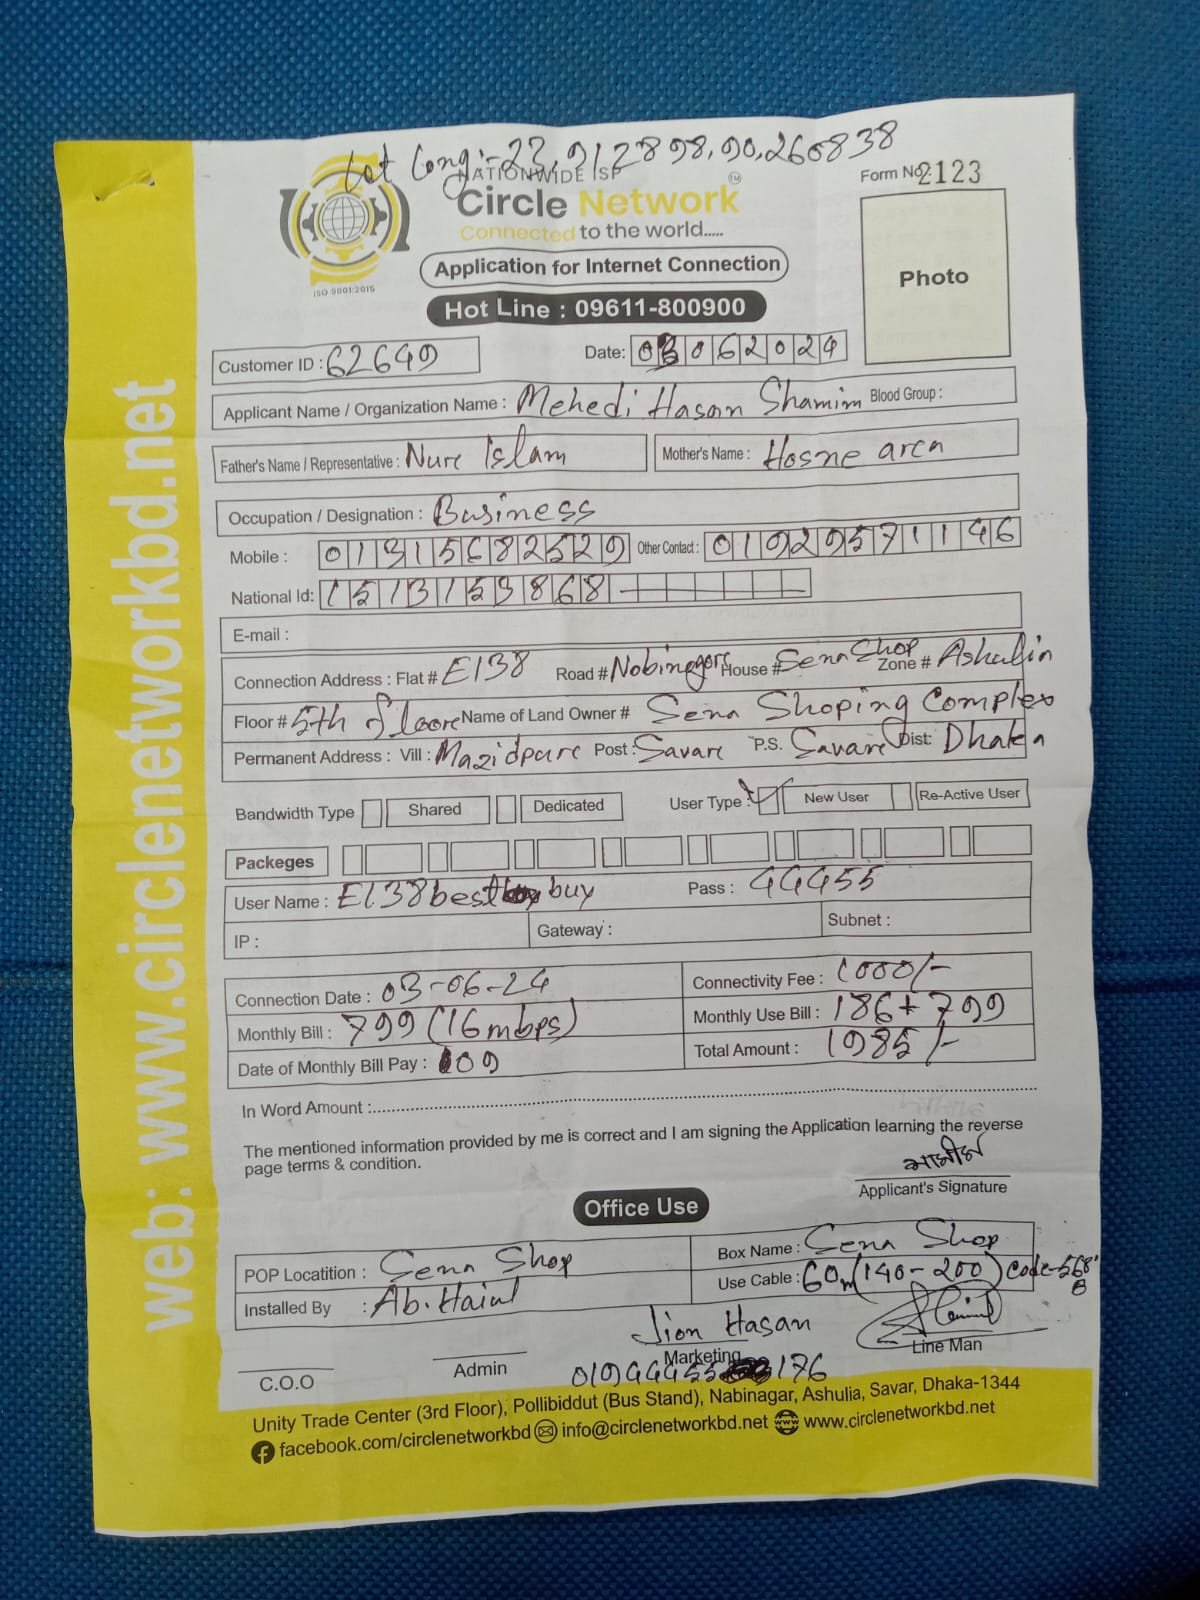 Lat Long:- 23.912898, 90.260838
NATIONWIDE ISP
Form No: 2123
Circle Network TM
Connected to the world.....
ISO 9001:2015
Application for Internet Connection
Photo
Hot Line : 09611-800900
Customer ID : 62649
Date: 03062024
Applicant Name / Organization Name : Mehedi Hasan Shamim Blood Group :
Father's Name / Representative : Nure Islam Mother's Name : Hosne area
Occupation / Designation : Business
Mobile : 01315682529 Other Contact : 01929571146
National Id: 1513153868
E-mail :
Connection Address : Flat # E138 Road # Nobinegore House # Sena Shop Zone # Ashulia
Floor # 5th floore Name of Land Owner # Sena Shoping Complex
Permanent Address : Vill : Mazidpure Post : Savare P.S. Savare Dist: Dhaka
Bandwidth Type Shared Dedicated User Type : New User Re-Active User
Packeges
User Name : E138best buy Pass : 44455
IP : Gateway : Subnet :
Connection Date : 03-06-24 Connectivity Fee : 1000/-
Monthly Bill : 799 (16mbps) Monthly Use Bill : 186+799
Date of Monthly Bill Pay : 09 Total Amount : 1985/-
In Word Amount :
The mentioned information provided by me is correct and I am signing the Application learning the reverse
page terms & condition.
Applicant's Signature
Office Use
POP Locatition : Sena Shop Box Name : Sena Shop
Installed By : Ab. Use Cable : 60m (140-200) Code-568'
B
Jion Hasan
C.O.O Admin Marketing Line Man
01944455 176
Unity Trade Center (3rd Floor), Pollibiddut (Bus Stand), Nabinagar, Ashulia, Savar, Dhaka-1344
facebook.com/circlenetworkbd info@circlenetworkbd.net www.circlenetworkbd.net
web: www.circlenetworkbd.net